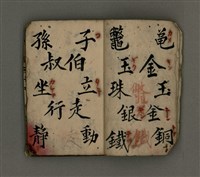 亀鼈
金玉
玉珠
金銀
銅鐵
子孫
伯叔
立坐
走行
動静